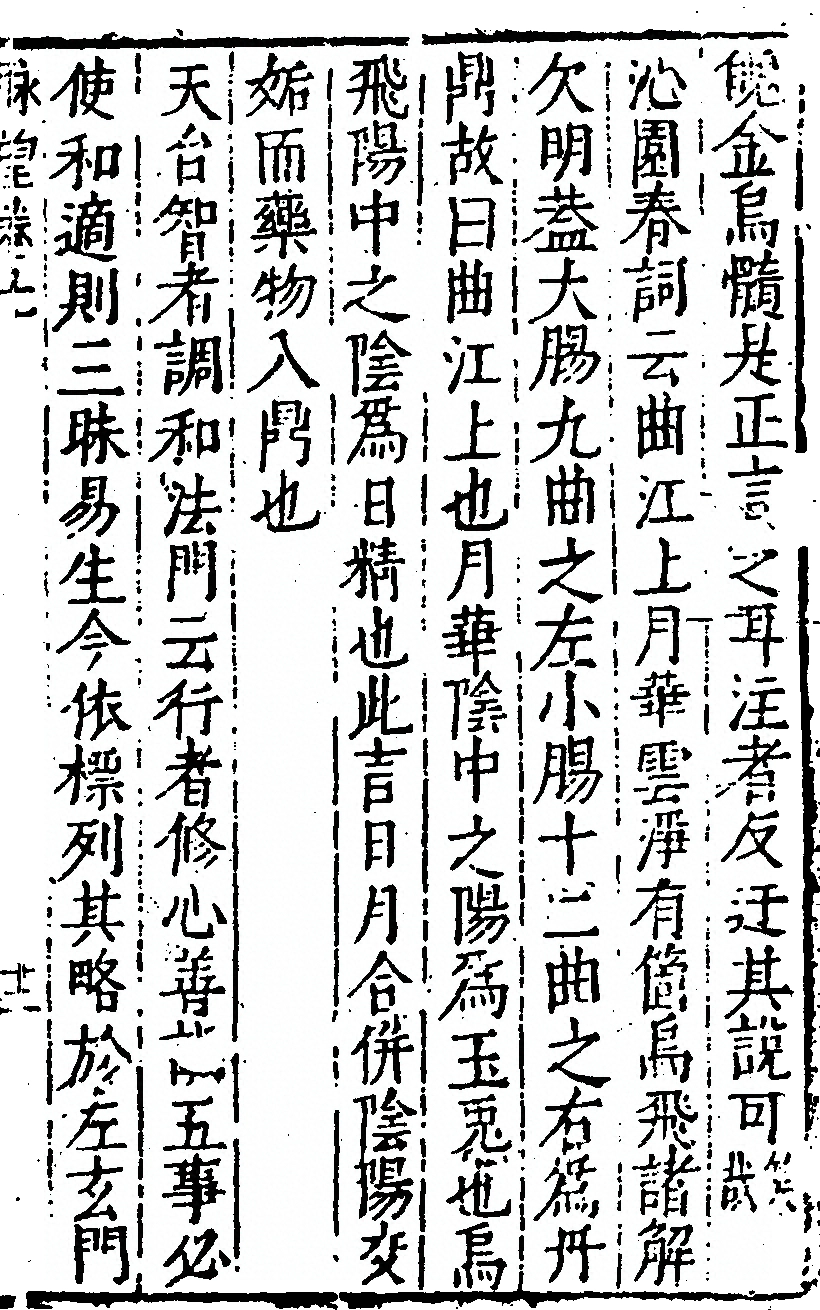 魄金烏髓是正言之耳注者反迂其說可
沁園春詞云曲江上月華雲淨有箇烏飛諸解
欠明葢大腸九曲之左小腸十二曲之右為丹
鼎故曰曲江上也月華陰中之陽為玉兎也烏
飛陽中之陰爲日精也此言日月合併陰陽交
姤而藥物入鼎也
天台智者調和法門云行者修心善 五事必
使和適則三昧易生今依標列其略於左玄門